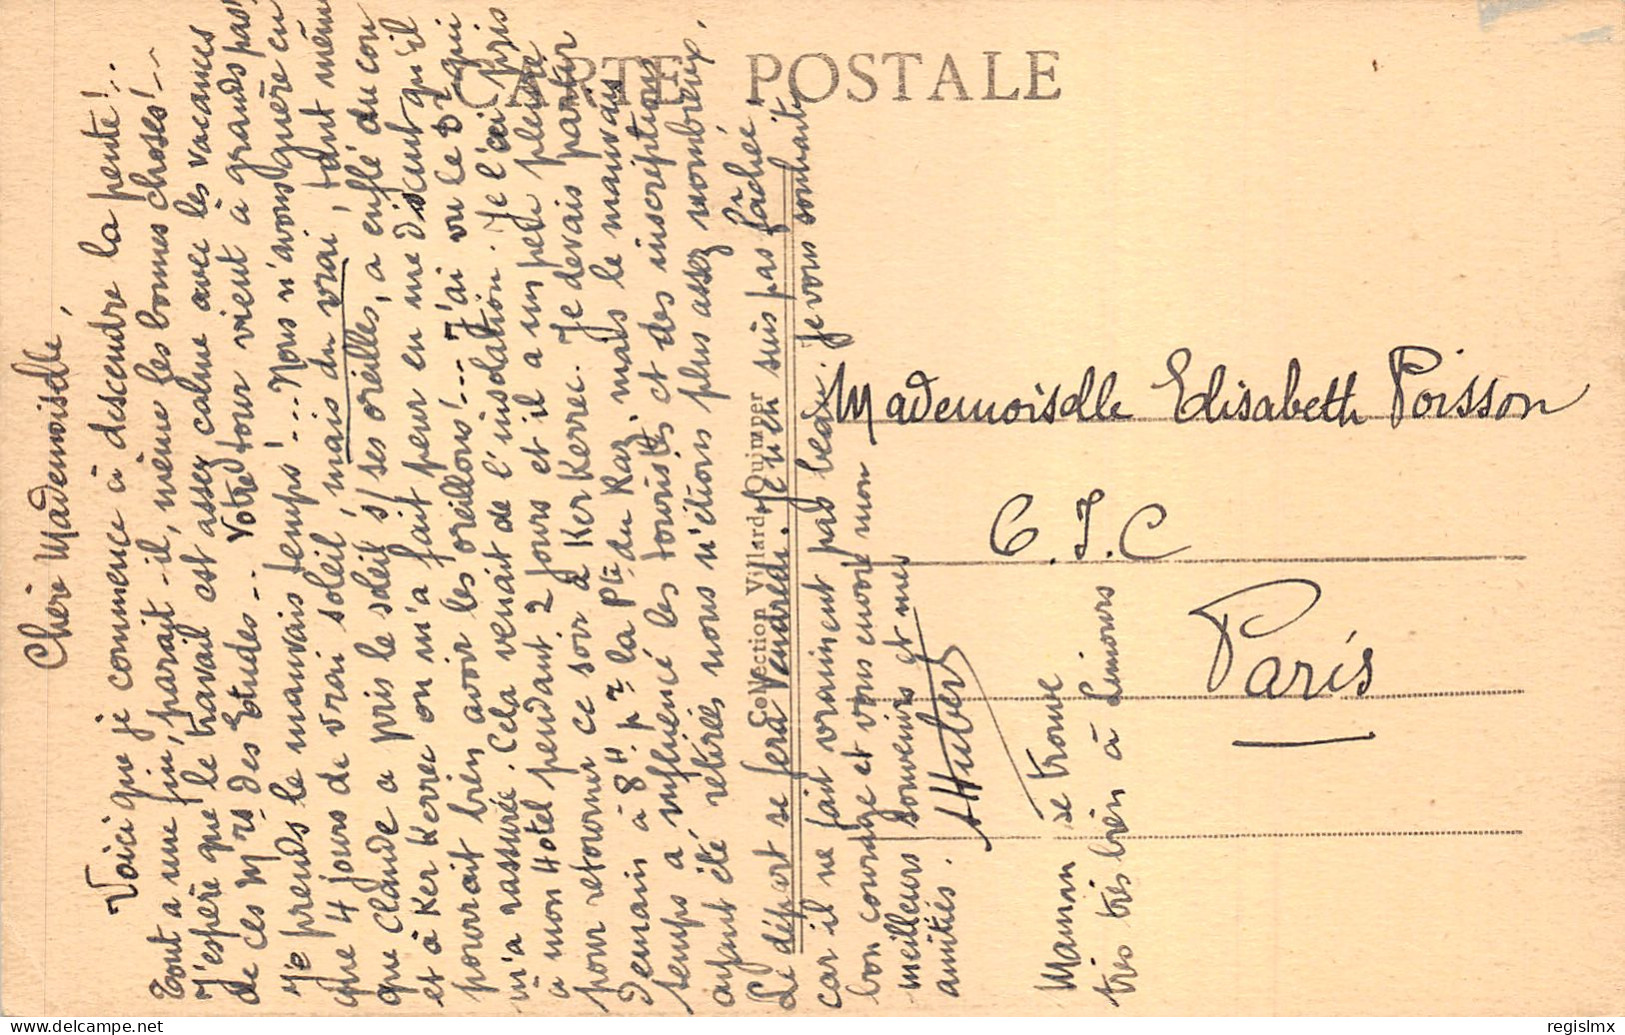 CARTE POSTALE
Chère Mademoiselle,
Voici que je commence à descendre la pente!..
Tout a une fin, parait-il, même les bonnes choses!--
J'espère que le travail est assez calme avec les vacances
de ces Mrs des Etudes... Votre tour vient à grands pas
Je prends le mauvais temps!... Nous n'avons guère eu
que 4 jours de vrai soleil, mais du vrai, tant même
que Claude a pris le soleil s/ ses oreilles, a enflé du cou
et à Ker Kerrec on m'a fait peur en me disant qu'il
pourrait bien avoir les oreillons!... J'ai vu le Dr qui
m'a rassurée. Cela venait de l'insolation. Je l'ai pris
à mon Hotel pendant 2 jours et il a un peu pleuré
pour retourner ce soir à Ker Kerrec. Je devais partir
demain à 8H pr la Pte du Raz, mais le mauvais
temps a influencé les touristes et des inscriptions
ayant été retirées nous n'étions plus assez nombreux.
Le départ se fera Vendredi. Je n'en suis pas fâchée
car il ne fait vraiment pas beau. Je vous souhaite
bon courage et vous envoie mon
meilleurs souvenirs et mes
amitiés.
Hubert
Maman se trouve
très très bien à Limours
Collection Villard, Quimper
Mademoiselle Elisabeth Poisson
C.I.C
Paris
www.delcampe.net
regislmx